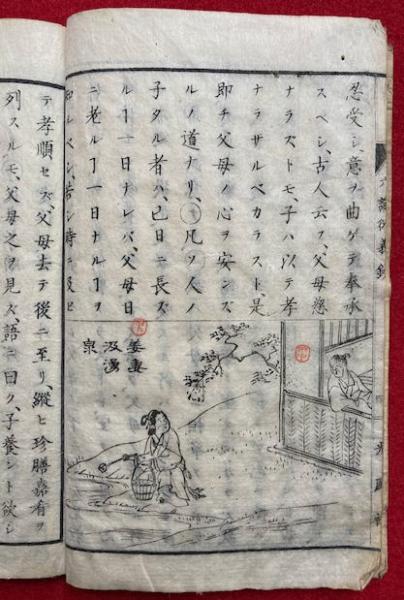 忍受シ、意ヲ曲ゲテ奉承
スベシ、古人云フ、父母慈
ナラズトモ、子ハ以テ孝
ナラサルベカラスト、是
即チ父母ノ心ヲ安ンズ
ルノ道ナリ、凡ソ人ノ
子タル者ハ、已日ニ長ズ
ルヿ一日ナレバ、父母日
ニ老ルヿ一日ナルヿヲ
知ルベシ、若シ時ニ及ビ
姜妻
汲湧
泉
テ孝順セズ、父母去テ後ニ至リ、縦ヒ珍膳嘉肴ヲ
列スルモ、父母之ヲ見ズ、語ニ曰ク、子養ント欲シ
六諭衍義鈔